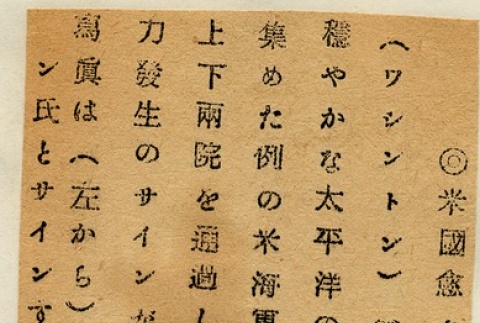 ◎米國愈
(ワシントン)
穩やかな太平洋の
集めた例の米海軍
上下兩院を通過し
力發生のサインが
寫眞は(左から)
ン氏とサインす